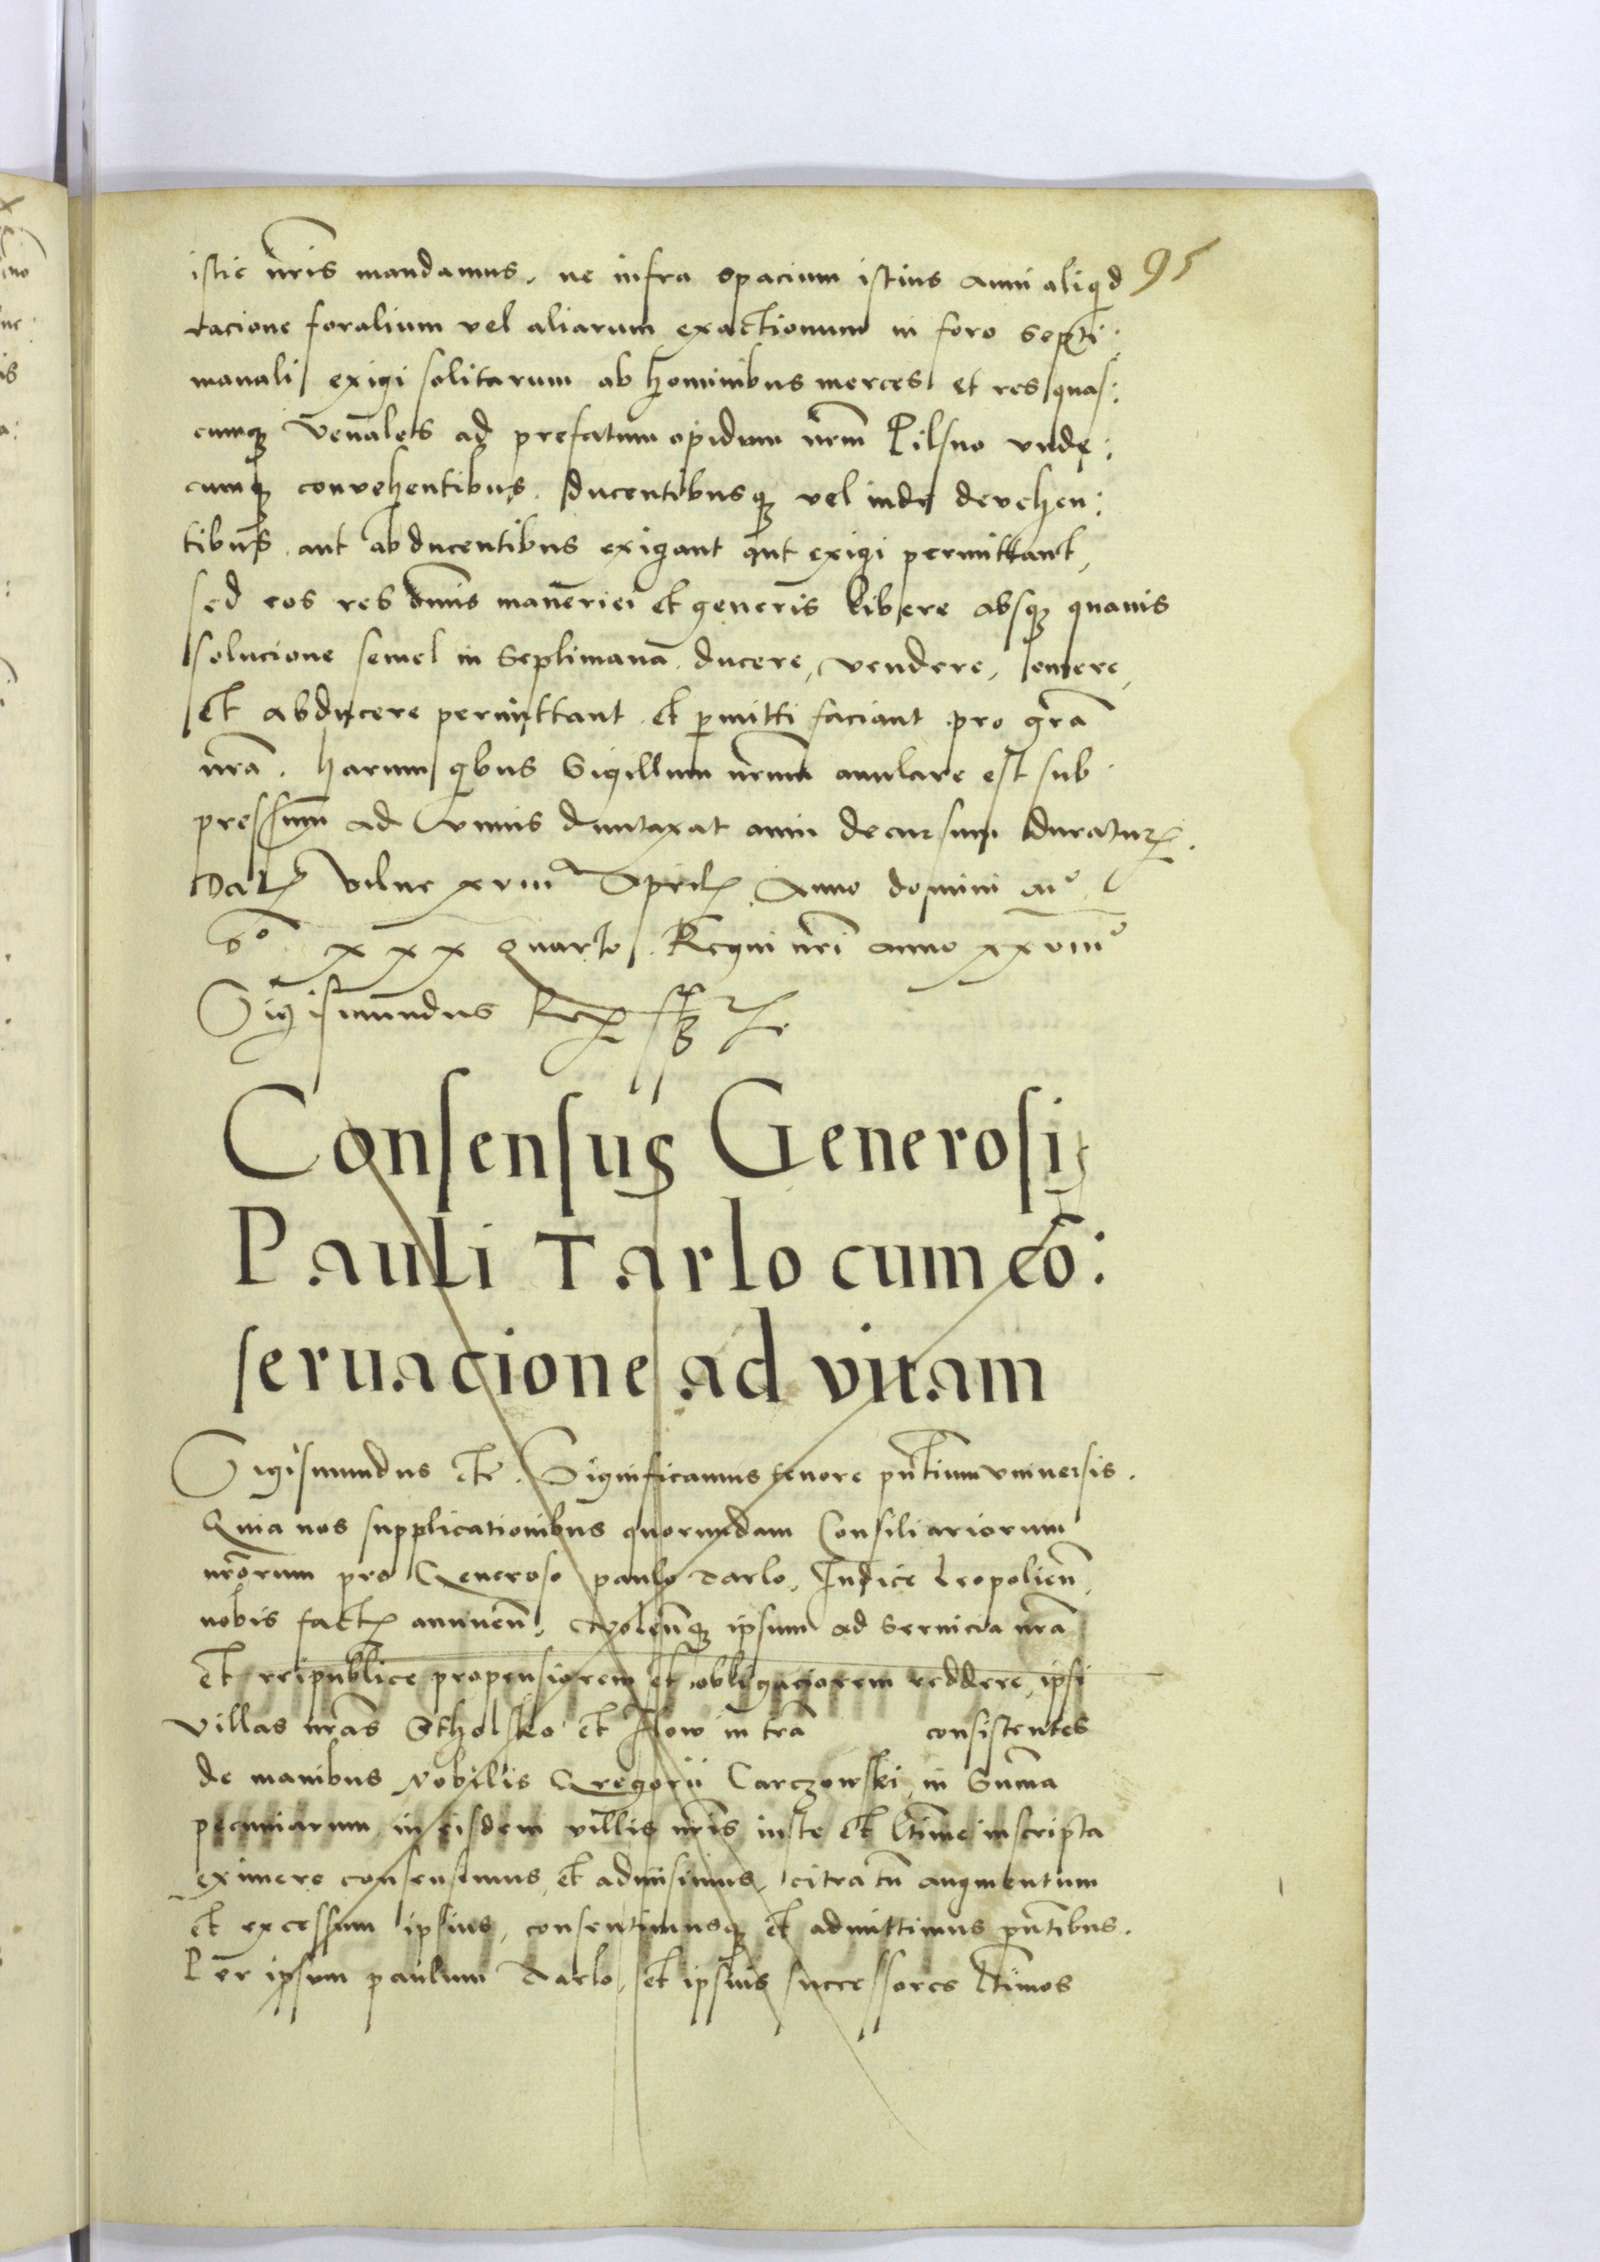 95
istic nr̃is mandamus, ne infra spacium istius anni aliqd
racione foralium vel aliarum exactionum in foro septi:
manali exigi solitarum ab hominibus merces et res quas:
cumq venales ad prefatum opidum nr̃m Pilsno vnde:
cumq convehentibus ducentibusq vel inde devehen:
tibus aut abducentibus exigant aut exigi permittant,
sed eos res om̃is maneriei et generis libere absq quauis
solucione semel in Septimanã ducere, vendere, emere,
et abducere permittant et p̱mitti faciant pro gr̃a
nr̃a. Harum qibus Sigillum nr̃um anulare est sub
pressum ad vnius duntaxat anni decursum duratur.
Dat Vilne xviiiª April Anno domini Mº
Dº xxx quarto. Regni nr̃i anno xxviiiº
Sigismundus Rex sst
Consensus Generosi
Pauli Tarlo cum cõ:
seruacione ad vitam
Sigismundus etc. Significamus tenore pñtium vniuersis.
Quia nos supplicationibus quorundam Consiliariorum
nr̃orum pro Generoso paulo Tarlo, Iudice Leopolieñ,
nobis fact annueñ. Voleñq ipsum ad Seruicia nr̃a
et reipublice propensiorem et obligaciorem reddere, ipsi
villas nr̃as Stholsko et Ilow in tr̃a consistentes
de manibus Nobilis Gregorii Carczowski, in Sum̃a
pecuniarum in eisdem villis nr̃is iuste et l̃time inscripta
eximere consensimus, et admisimus, citra tñ augmentum
et excessum ipsius, consentimusq et admittimus pñtibus.
Per ipsum paulum Tarlo, et ipsius successores l̃timos